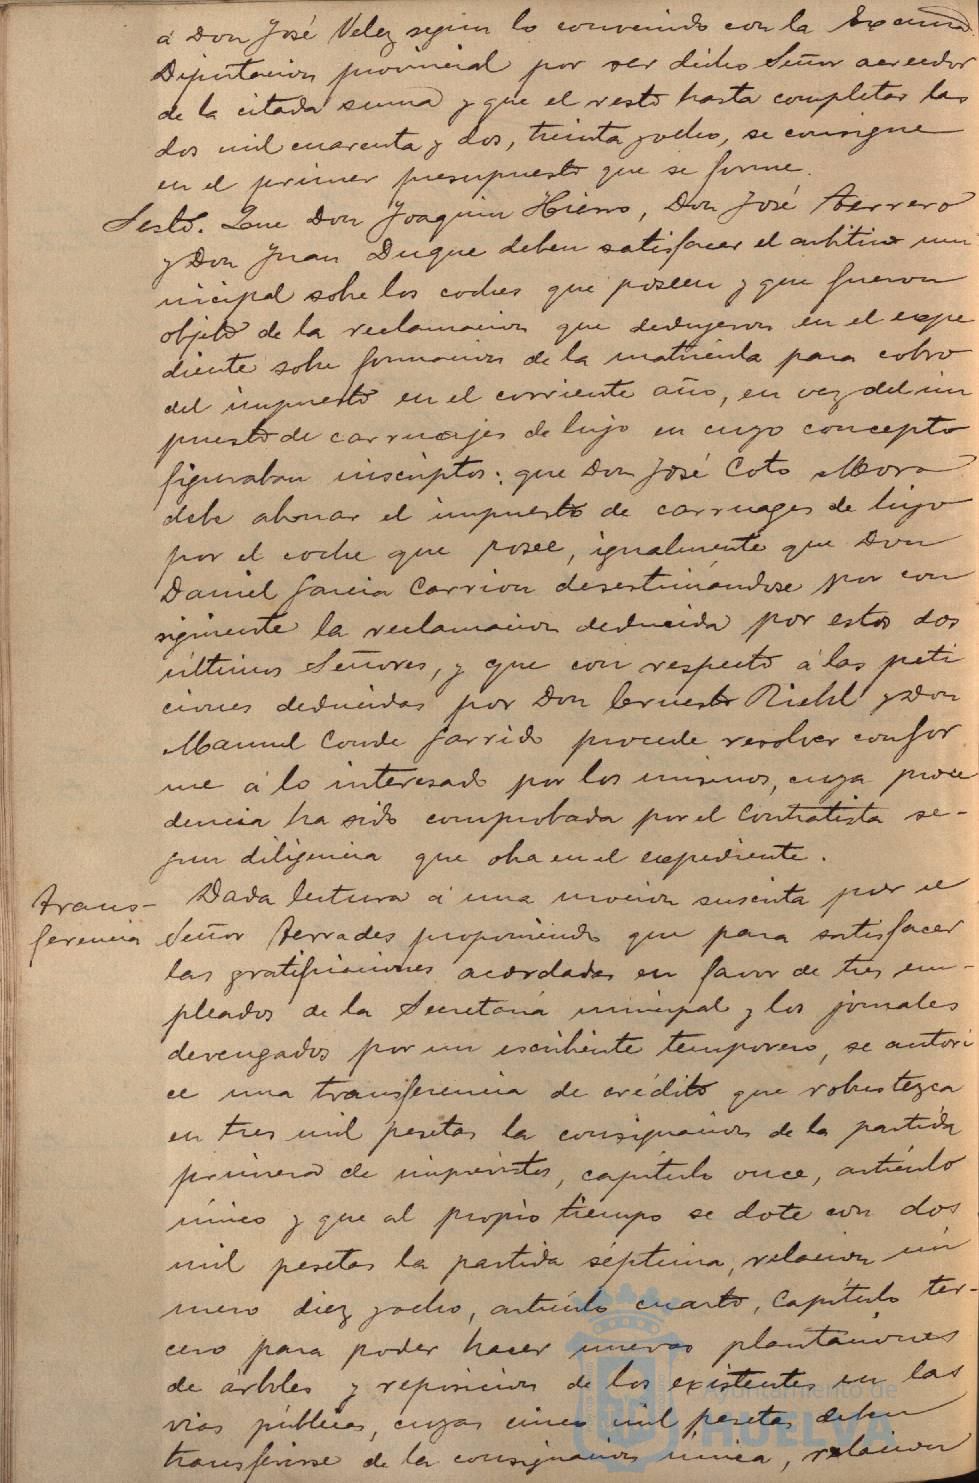 á Don José Velez segun lo convenido con la Excma
Diputacion provincial por ser dicho Señor acreedor
de la citada suma y que el resto hasta completar las
dos mil cuarenta y dos, treinta y ocho, se consigne
en el primer presupuesto que se forme.
Sesto. Que Don Joaquin Hierro, Don José Ferrero
y Don Juan Duque deben satisfacer el arbitrio mu
nicipal sobre los coches que poseen y que fueron
objeto de la reclamacion que dedujeron en el expe
diente sobre formacion de la matricula para cobro
del impuesto en el corriente año, en vez del im
puesto de carruajes de lujo en cuyo concepto
figuraban inscriptos; que Don José Coto Mora
debe abonar el impuesto de carruages de lujo
por el coche que posee, igualmente que Don
Daniel Garcia Carrion desestimándose por con
siguiente la reclamacion deducida por estos dos
últimos Señores, y que con respecto á las peti
ciones deducidas por Don Ernesto Riehl y Don
Manuel Conde Garrido procede resolver confor
me á lo interesado por los mismos, cuya proce
dencia ha sido comprobada por el Contratista se-
gun diligencia que obra en el expediente.
Trans-
ferencia
Dada lectura á una mocion suscrita por el
Señor Terrades proponiendo que para satisfacer
las gratificaciones acordadas en favor de tres em-
pleados de la Secretaria municipal y los jornales
devengados por un escribiente temporero, se autori
ce una transferencia de crédito que robustezca
en tres mil pesetas la consignacion de la partida
primera de imprevistos, capítulo once, artículo
único y que al propio tiempo se dote con dos
mil pesetas la partida séptima, relacion nú
mero diez y ocho, artículo cuarto, Capítulo ter-
cero para poder hacer nuevas plantaciones
de árboles y reposicion de los existentes en las
vias públicas, cuyas cinco mil pesetas deben
transferirse de la consignacion única, relacion
Ayuntamiento de
HUELVA